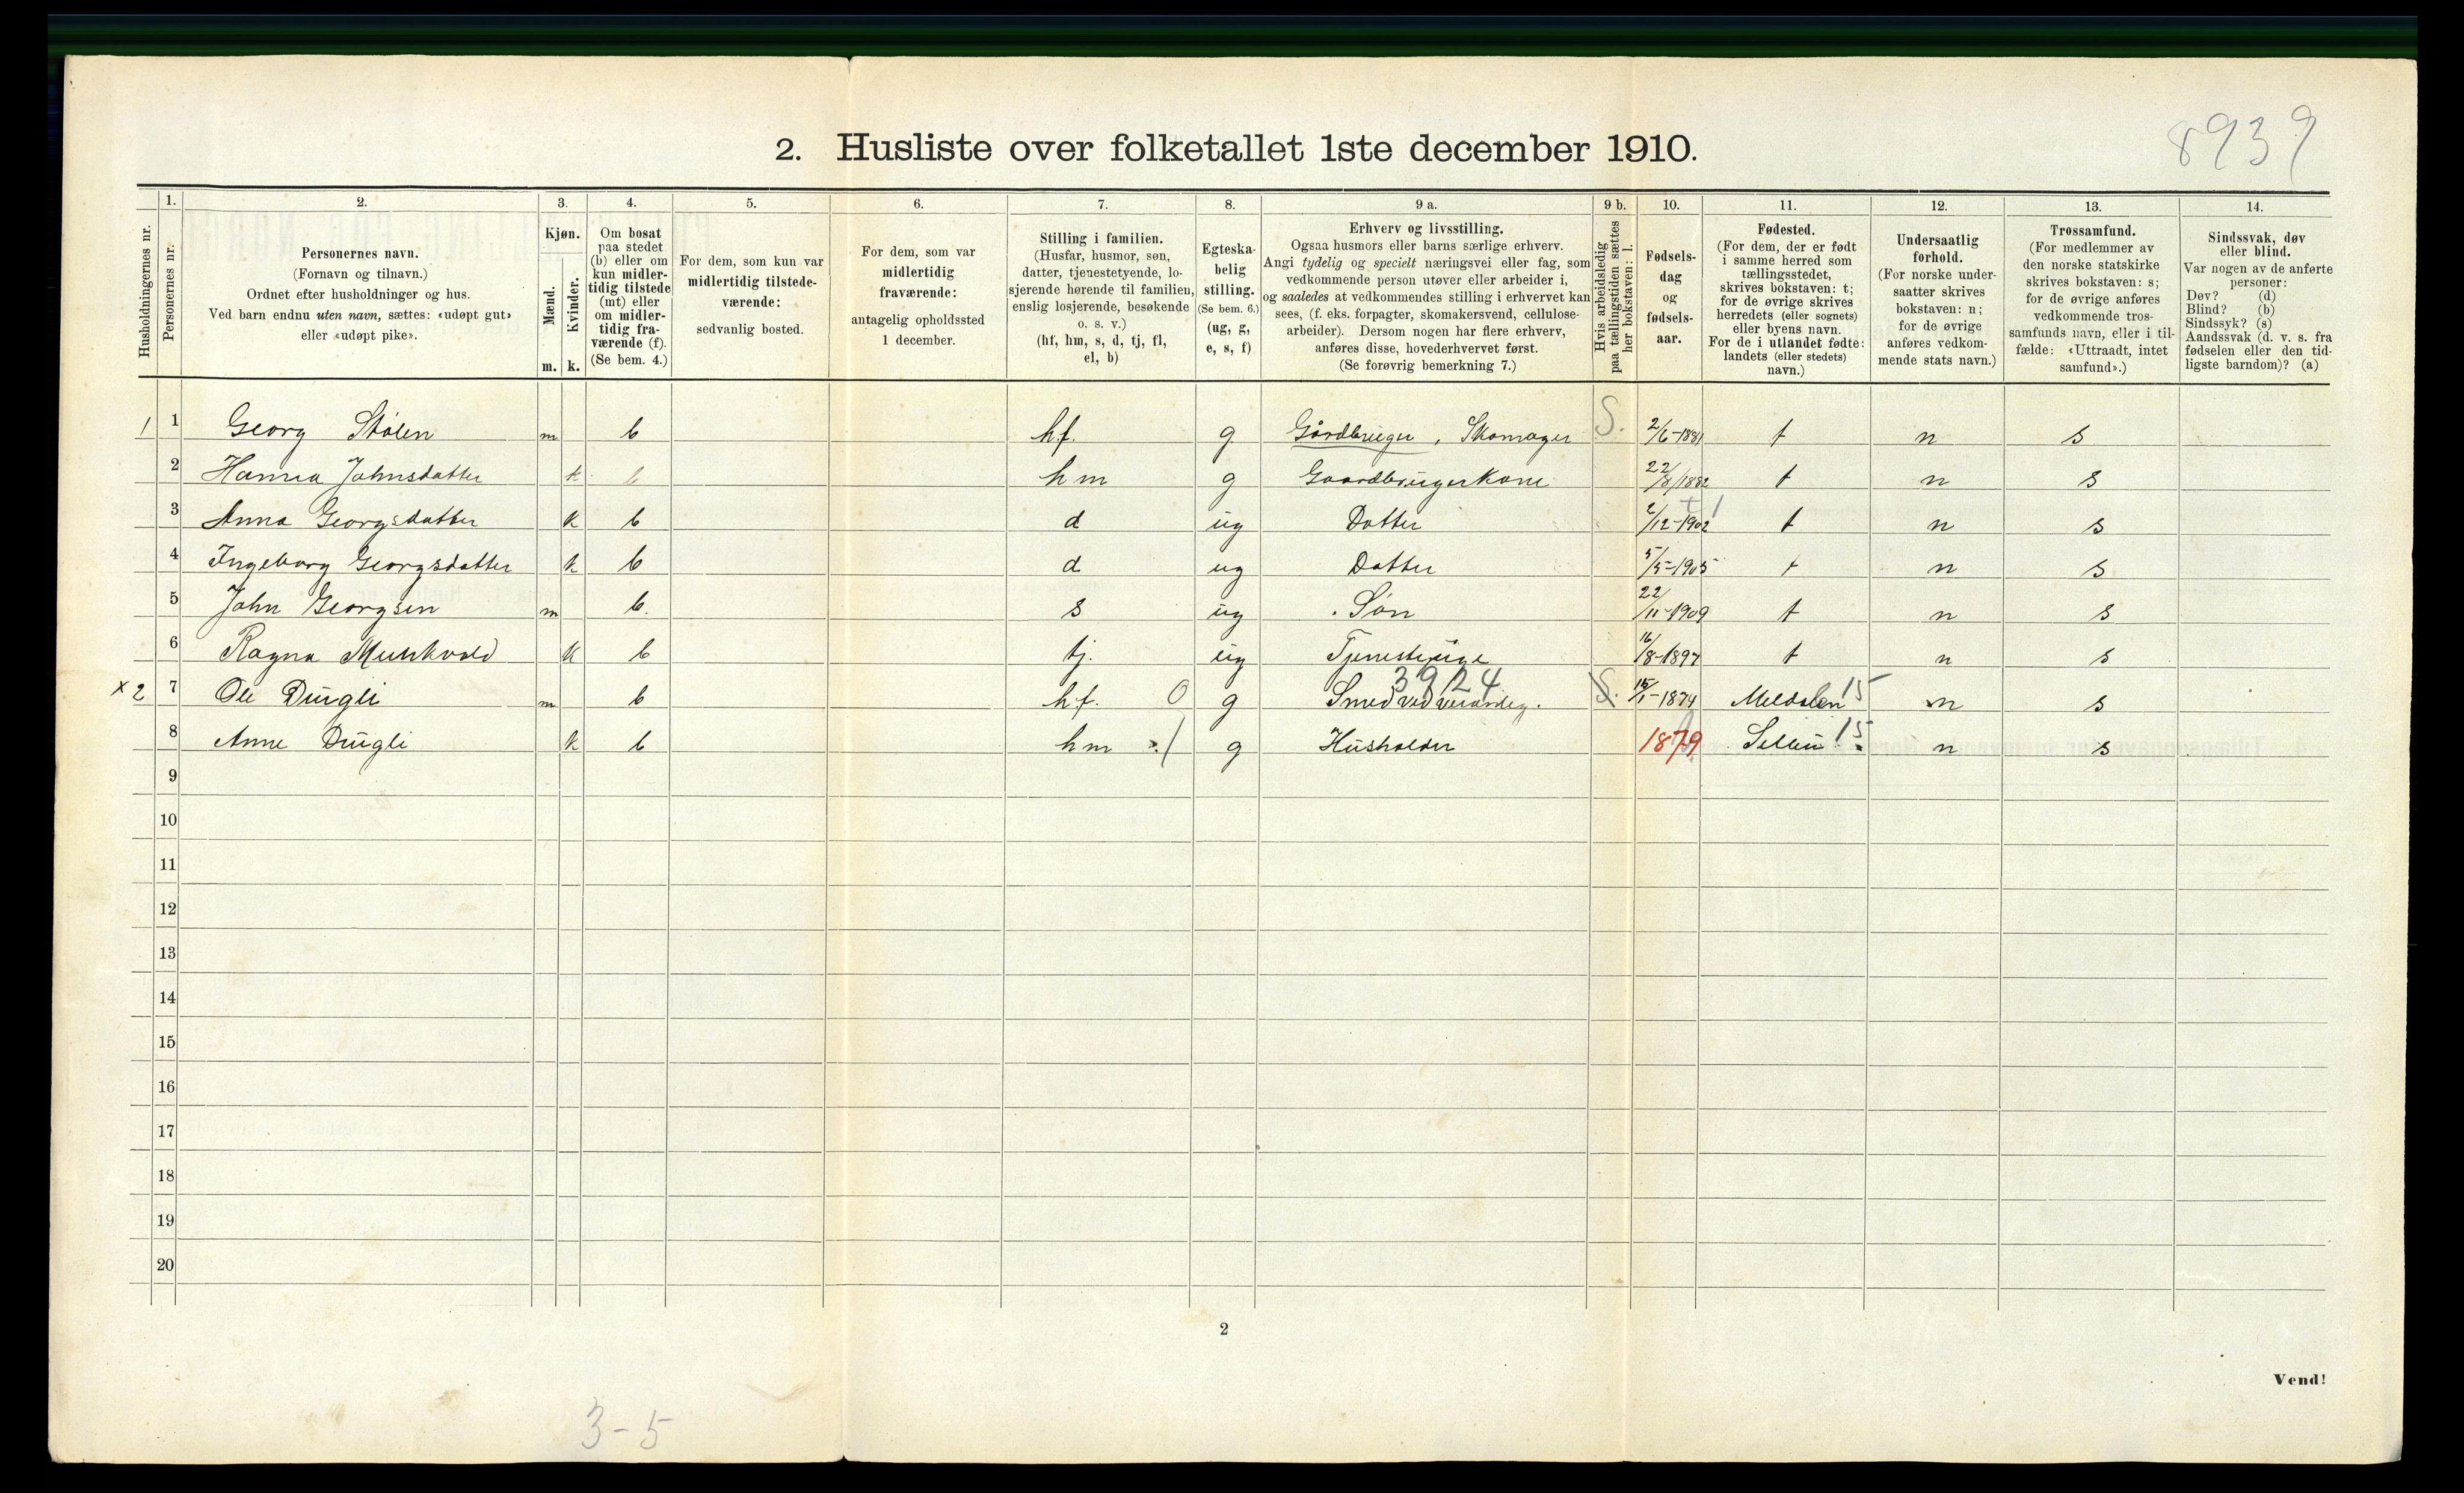 8939
2. Husliste over folketallet 1ste december 1910.
Husholdningernes nr.
1.
Personernes nr.
2.
Personernes navn.
(Fornavn og tilnavn.)
Ordnet efter husholdninger og hus.
Ved barn endnu uten navn, sættes: «udøpt gut»
eller «udøpt pike».
3.
Kjøn.
Mænd.
Kvinder.
m. k.
4.
Om bosat
paa stedet
(b) eller om
kun midler-
tidig tilstede
(mt) eller
om midler-
tidig fra-
værende (f).
(Se bem. 4.)
5.
For dem, som kun var
midlertidig tilstede-
værende:
sedvanlig bosted.
6.
For dem, som var
midlertidig
fraværende:
antagelig opholdssted
1 december.
7.
Stilling i familien.
(Husfar, husmor, søn,
datter, tjenestetyende, lo-
sjerende hørende til familien,
enslig losjerende, besøkende
o. s. v.)
(hf, hm, s, d, tj, fl,
el, b)
8.
Egteska-
belig
stilling.
(Se bem. 6.)
(ug, g,
e, s, f)
9 a.
Erhverv og livsstilling.
Ogsaa husmors eller barns særlige erhverv.
Angi tydelig og specielt næringsvei eller fag, som
vedkommende person utøver eller arbeider i,
og saaledes at vedkommendes stilling i erhvervet kan
sees, (f. eks. forpagter, skomakersvend, cellulose-
arbeider). Dersom nogen har flere erhverv,
anføres disse, hovederhvervet først.
(Se forøvrig bemerkning 7.)
9 b.
Hvis arbeidsledig
paa tællingstiden sættes
her bokstaven: l.
10.
Fødsels-
dag
og
fødsels-
aar.
11.
Fødested.
(For dem, der er født
i samme herred som
tællingsstedet,
skrives bokstaven: t;
for de øvrige skrives
herredets (eller sognets)
eller byens navn.
For de i utlandet fødte:
landets (eller stedets)
navn.)
12.
Undersaatlig
forhold.
(For norske under-
saatter skrives
bokstaven: n;
for de øvrige
anføres vedkom-
mende stats navn.)
13.
Trossamfund.
(For medlemmer av
den norske statskirke
skrives bokstaven: s;
for de øvrige anføres
vedkommende tros-
samfunds navn, eller i til-
fælde: «Uttraadt, intet
samfund».)
14.
Sindssvak, døv
eller blind.
Var nogen av de anførte
personer:
Døv? (d)
Blind? (b)
Sindssyk? (s)
Aandssvak (d. v. s. fra
fødselen eller den tid-
ligste barndom)? (a)
1 1 Georg Stølen m b hf. g Gårdbruger, Skomager S. 2/6-1881 t n s
2 Hanna Johnsdatter k b hm g Gaardbrugerkone 22/8/1882 t n s
3 Anna Georgsdatter k b d ug Datter 2/12-1902 t n s
4 Ingeborg Georgsdatter k b d ug Datter 5/5-1905 t n s
5 John Georgsen m b. s ug Søn 22/11-1909 t n s
6 Ragna Munkvold k b tj. ug Tjenestepige 16/8-1897 t n s
3924
x 2 7 Ole Drugli m b hf. 0 g Smed ved S. 15/1-1874 Meldalen 15 n s
8 Anne Drugli k b hm 1 g Husholder 1879 15 n s
9
10
11
12
13
14
15
16
17
18
19
20
2
Vend!
3-5